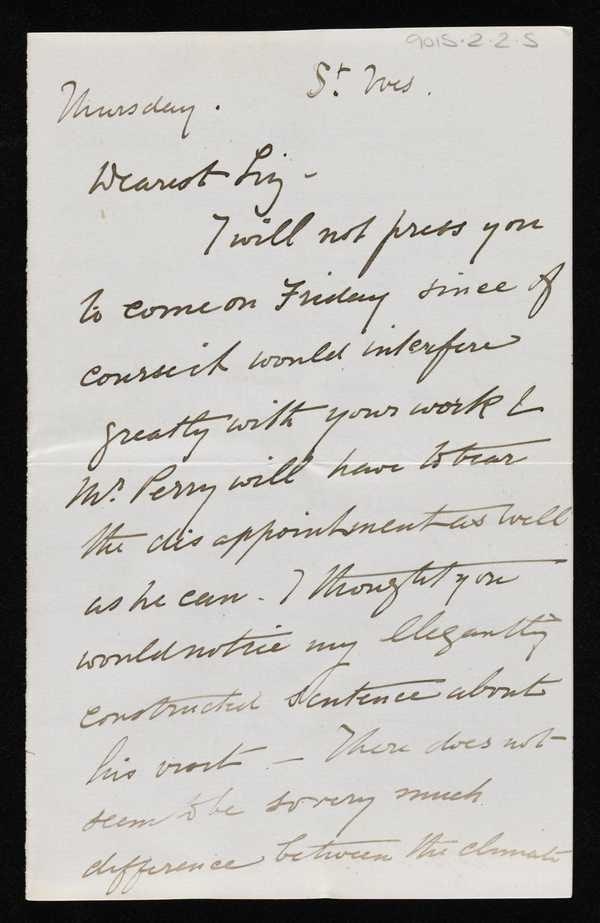 9015-2-2-5
St Ives.
Thursday.
Dearest Liz -
I will not press you
to come on Friday since of
course it would interfere
greatly with your work &
Mr Perry will have to bear
the disappointment as well
as he can - I thought you
would notice my elegantly
constructed sentence about
his visit - There does not
seem to be so very much
difference between the climate